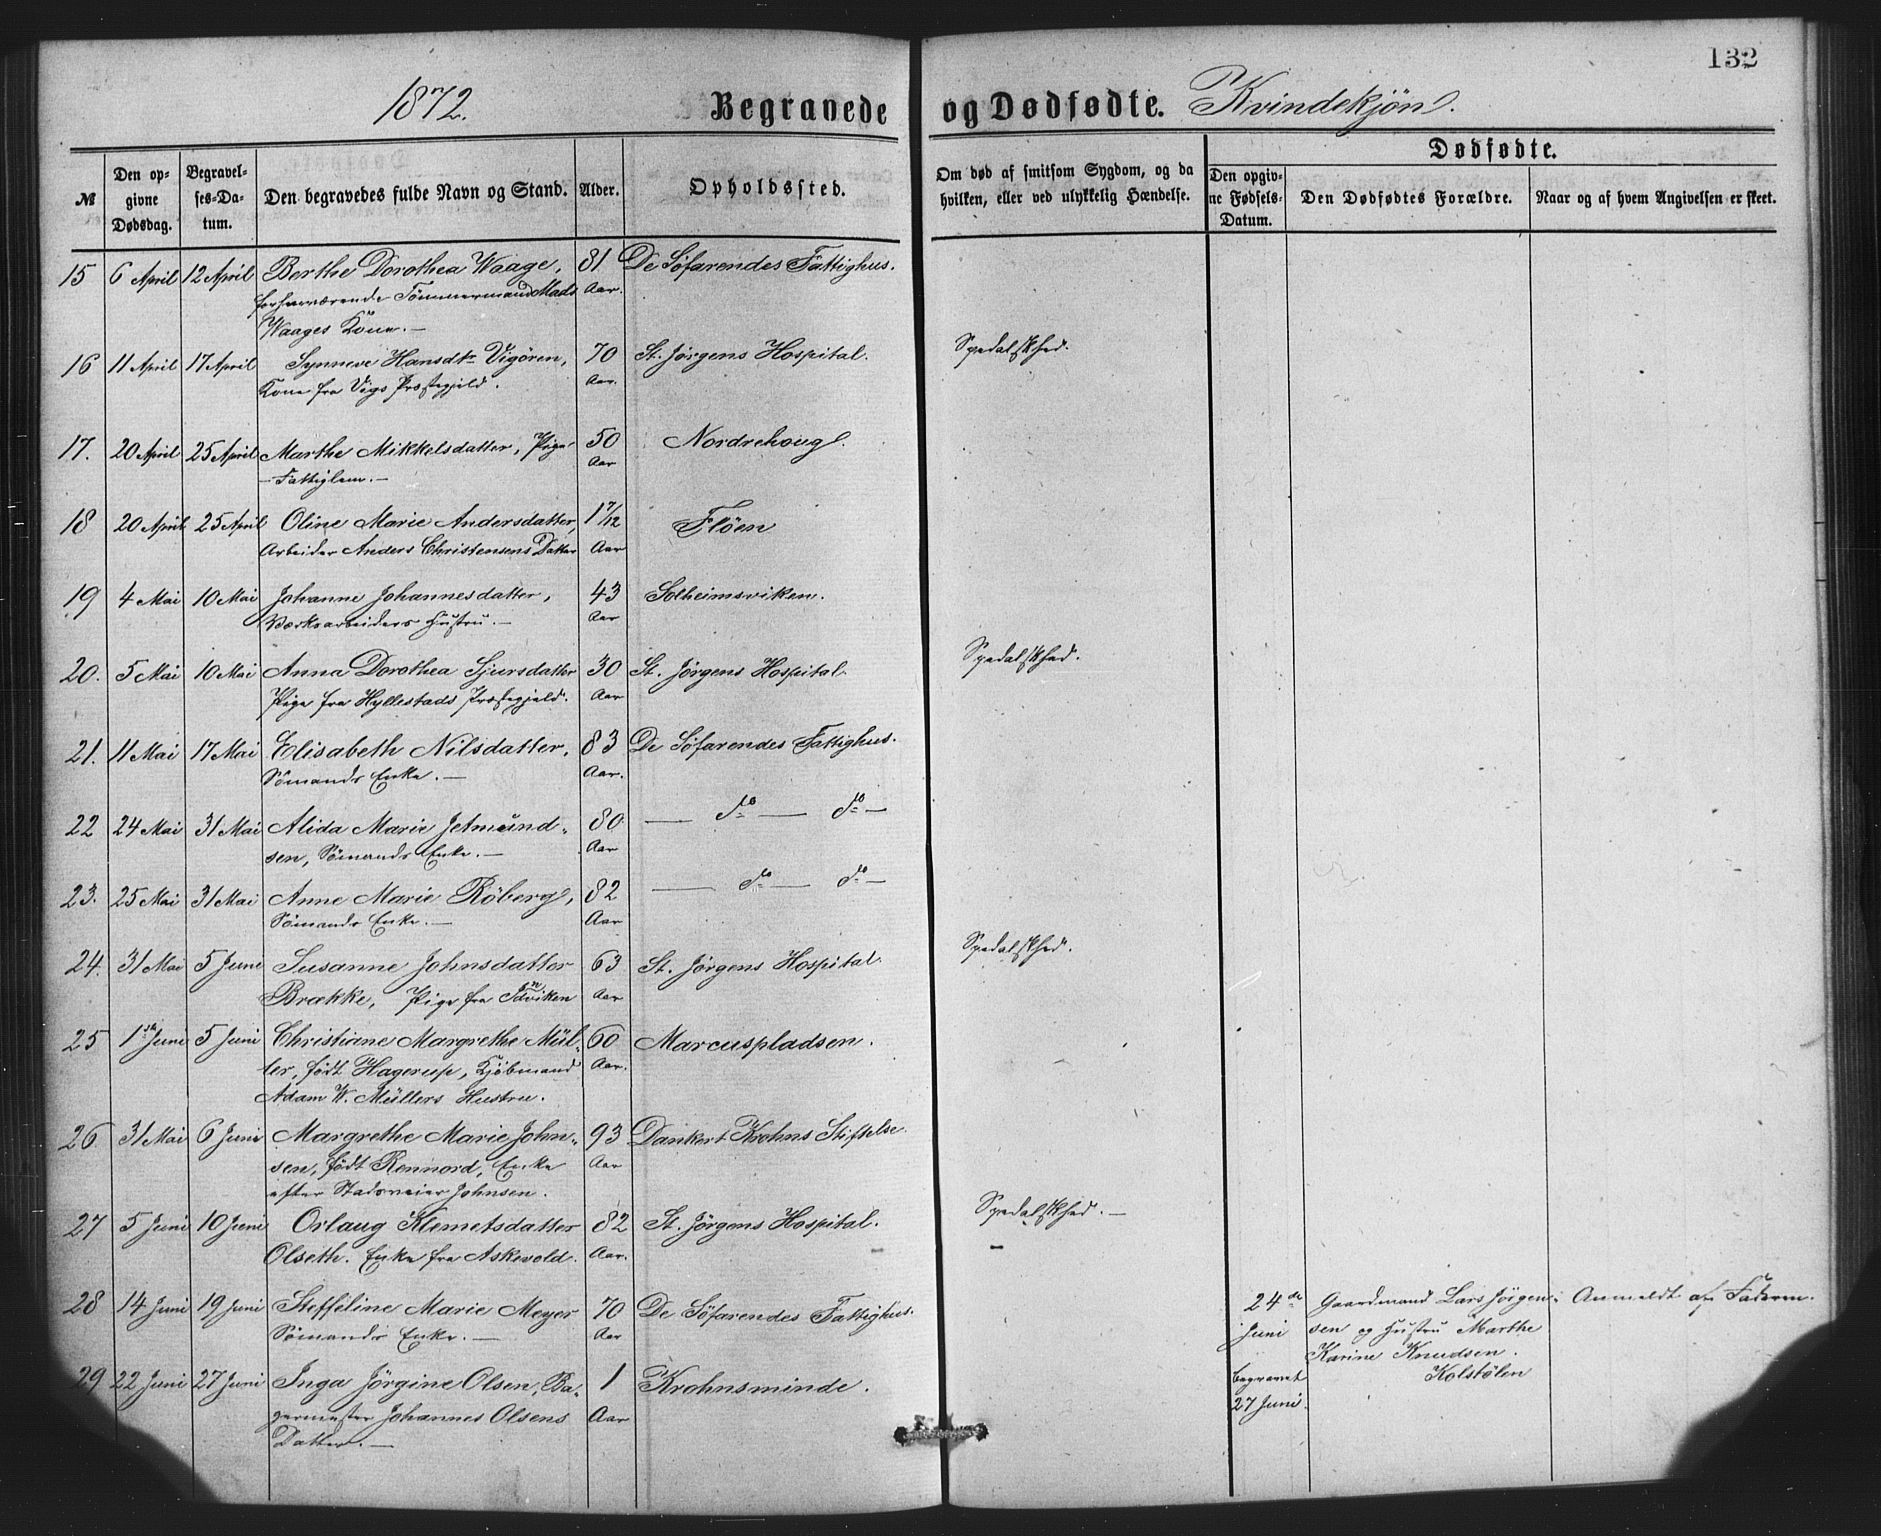 132
1872. Begravede og Dødfødte. Kvindekjøn.
Dødfødte.
№ Den opgivne Dødsdag. Begravelses-Datum. Den begravedes fulde Navn og Stand. Alder. Opholdssted. Om død af smitsom Sygdom, og da hvilken, eller ved ulykkelig Hændelse. Den opgivne Fødsels-Datum. Den Dødfødtes Forældre. Naar og af hvem Angivelsen er skeet.
15 6 April 12 April Berthe Dorothea Waage, 81 De Söfarendes Fattighus.
forhenværende Tömmermand Mads Aar.
Waages Kone.—
16 11 April 17 April Synneve Hansdtr Vigören, 70 St. Jörgens Hospital. Spedalskhed.
Kone fra Vigs Præstegjeld. Aar.
17. 20 April 25 April Marthe Mikkelsdatter, Pige 50 Nordrehoug.
— Fattiglem.— Aar
18 20 April 25 April Oline Marie Andersdatter, 1 7/12 Flöen
Arbeider Anders Christensens Datter Aar
19 4 Mai 10 Mai Johanne Johannesdatter, 43 Solheimsviken.
Værksarbeiders Hustru.— Aar
20. 5 Mai 10 Mai Anna Dorothea Sjursdatter 30 St. Jörgens Hospital. Spedalskhed.
Pige fra Hyllestads Præstegjeld. Aar
21. 11 Mai 17 Mai Elisabeth Nilsdatter, 83 De Söfarendes Fattighus.
Sömands Enke.— Aar.
22 24 Mai 31 Mai Alida Marie Jetmund- 80 — do — do —
sen, Sömands Enke.— Aar
23. 25 Mai 31 Mai Anne Marie Röberg, 82 — do — do —
Sömands Enke.— Aar
24. 31 Mai 5 Juni Susanne Johnsdatter 63 St. Jörgens Hospital. Spedalskhed.
Brække, Pige fra Indviken Aar
25 1ste Juni 5 Juni Christiane Margrethe Mül- 60 Marcuspladsen.
ler, födt Hagerup, Kjöbmand Aar.
Adam W. Müllers Hustru.
26 31 Mai 6 Juni Margrethe Marie John- 93 Dankert Krohns Stiftelse.
sen, födt Rennord, Enke Aar
efter Stadsveier Johnsen.
27 5 Juni 10 Juni Orlaug Klemetsdatter 82 St. Jörgens Hospital. Spedalskhed.—
Olseth. Enke fra Askevold. Aar.
28 14 Juni 19 Juni Steffeline Marie Meyer 70 De Söfarendes Fattighus.
Sömands Enke.— Aar
24de Juni begravet 27 Juni. Gaardmand Lars Jörgen- Anmeldt af Faderen.
sen og Hustru Marthe
Karine Knudsen.
Kolstölen
29 22 Juni 27 Juni Inga Jörgine Olsen, Ba- 1 Krohnsminde.
germester Johannes Olsens Aar
Datter.—